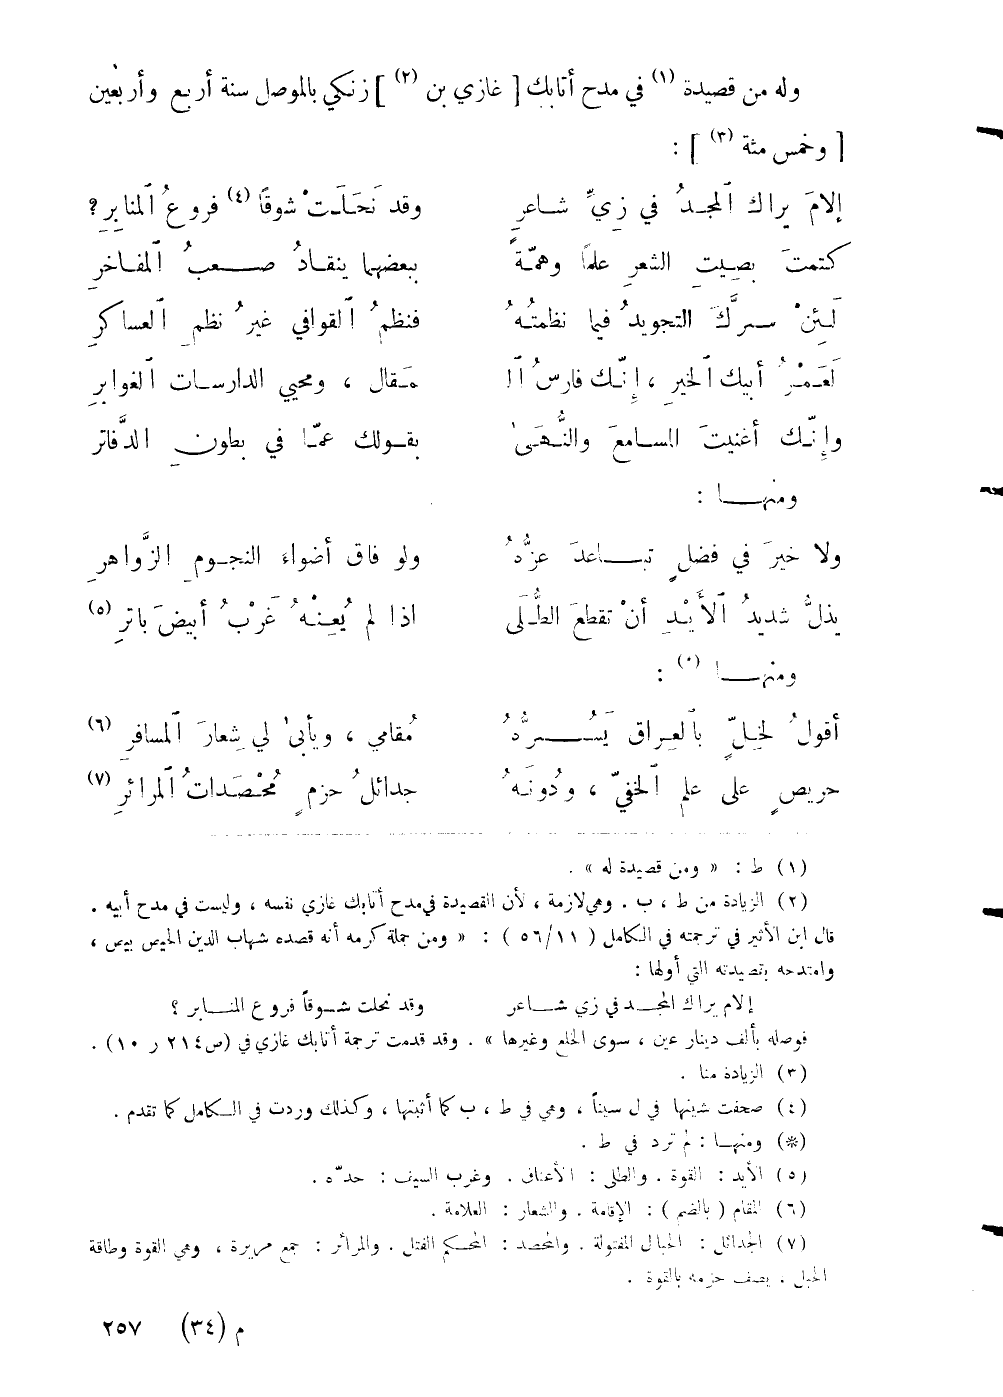 وله من قصيدة (١) في مدح أتابك [ غازي بن (٢) ] زنكي بالموصل سنة أربع وأربعين
[ وخمس مئة (٣) ] :
إلامَ يراك ٱلمجدُ في زيِّ شاعرِ وقد نَحَلَتْ شوقًا (٤) فروعُ ٱلمنابرِ ؟
كتمتَ بصِيتِ الشعرِ علمًا وهمّةً ببعضها ينقادُ صعبُ ٱلمفاخرِ
لَئِنْ سرَّكَ التجويدُ فيما نظمتُهُ فنظمُ ٱلقوافي غيرُ نظمِ ٱلعساكرِ
لَعَمْرُ أبيك ٱلخيرِ ، إنّك فارسُ ٱلـ مَقال ، ومحيي الدارسات ٱلغوابرِ
وإنّك أغنيتَ المسامعَ والنُّهَىٰ بقولك عمّا في بطونِ الدَّفاتر
ومنها :
ولا خيرَ في فضلٍ تباعدَ عزُّهُ ولو فاق أضواءَ النجومِ الزَّواهرِ
يذلُّ شديدُ ٱلأَيْدِ أنْ تقطعَ الطُّلَى اذا لم يُعِنْهُ غَرْبُ أبيضَ باترِ (٥)
ومنها (*) :
أقولُ لخِلٍّ بٱلعِراق يَسُرُّهُ مُقامي ، ويأبىٰ لي شِعارَ ٱلمسافرِ (٦)
حريصٍ على علمِ ٱلخفيّ ، ودُونَهُ جدائلُ حزمٍ مُحْصَداتُ ٱلمرائرِ (٧)
(١) ط : « ومن قصيدة له » .
(٢) الزيادة من ط ، ب . وهي لازمة ، لأن القصيدة في مدح أتابك غازي نفسه ، وليست في مدح أبيه .
قال ابن الأثير في ترجمته في الكامل ( ٥٦/١١ ) : « ومن جملة كرمه أنه قصده شهاب الدين الحيص بيص ،
وامتدحه بقصيدته التي أولها :
إلام يراك المجد في زي شاعر وقد نحلت شوقاً فروع المنابر ؟
فوصله بألف دينار عين ، سوى الخلع وغيرها » . وقد قدمت ترجمة أتابك غازي في (ص٢١٤ ر ١٠) .
(٣) الزيادة منا .
(٤) صحفت شينها في ل سيناً ، وهي في ط ، ب كما أثبتها ، وكذلك وردت في الكامل كما تقدم .
(*) ومنها : لم ترد في ط .
(٥) الأيد : القوة . والطلى : الأعناق . وغرب السيف : حدّه .
(٦) المقام ( بالضم ) : الإقامة . والشعار : العلامة .
(٧) الجدائل : الحبال المفتولة . والمحصد : المحكم الفتل . والمرائر : جمع مريرة ، وهي القوة وطاقة
الحبل . يصف حزمه بالقوة .
م (٣٤) ٢٥٧